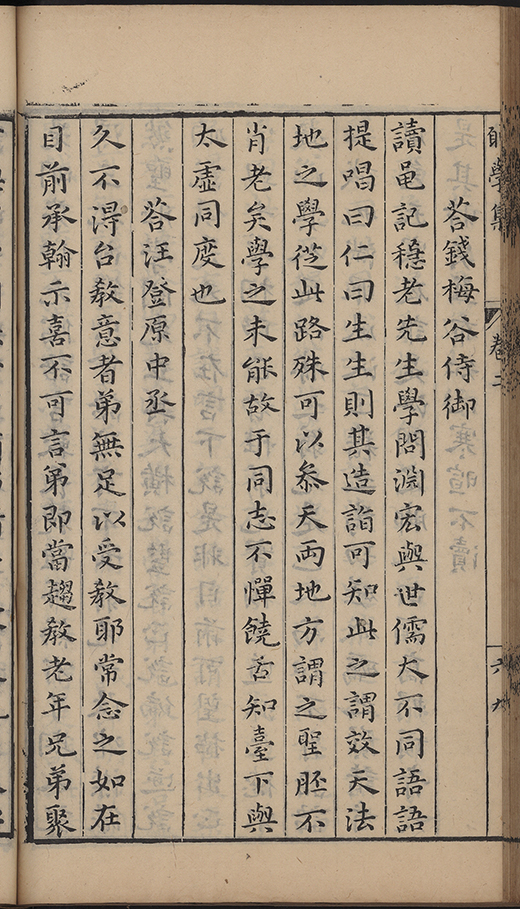 學集 卷二
荅錢梅谷侍御
讀黽記穩老先生學問淵宏與世儒大不同語語
提唱曰仁曰生生則其造詣可知此之謂效天法
地之學從此路殊可以叅天兩地方謂之聖胚不
肖老矣學之未能故于同志不憚饒舌知臺下與
太虛同度也
荅汪登原中丞
久不淂台教意者弟無足以受教耶常念之如在
目前承翰示喜不可言弟即當趨教老年兄弟聚